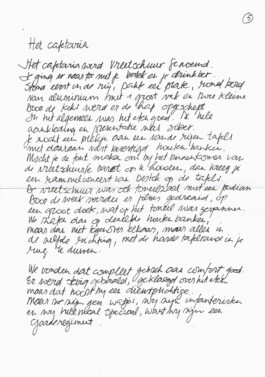 3
Het cafetaria
Het cafetaria werd Vreetschuur genoemd.
Je ging er naar toe met je bestek en je drinkbeker.
Stond eerst in de rij, pakte een plate, rond bord
van aluminium met 1 groot vak en twee kleine
Door de kok werd er de hap opgeschept
In het algemeen was het eten goed. De hele
aankleding en presentatie was sober.
Je zocht een plekje aan een van de lange tafels
met daaraan vast bevestigd houten banken.
Mocht je de fout maken om bij het binnenkomen van
de vreetschuur je baret op te houden, dan kreeg je
een trommelconcert van bestek op de tafels.
De vreetschuur was ook toneelzaal met een podium
Door de week werden er films gedraaid, op
een groot doek, wat op het toneel was gespannen.
We zaten dan op dezelfde houten banken,
maar dan niet tegenover elkaar, maar alles in
dezelfde richting, met de harde tafelrand in je
rug te duwen.
We vonden dat compleet gebrek aan comfort goed.
Er werd stevig gebaald, geklaagd over het eten
maar dat hoort bij een dienstplichtige.
Maar we zijn geen watjes, wij zijn infanteristen
en wij helemaal speciaal, want wij zijn een
Garderegiment.